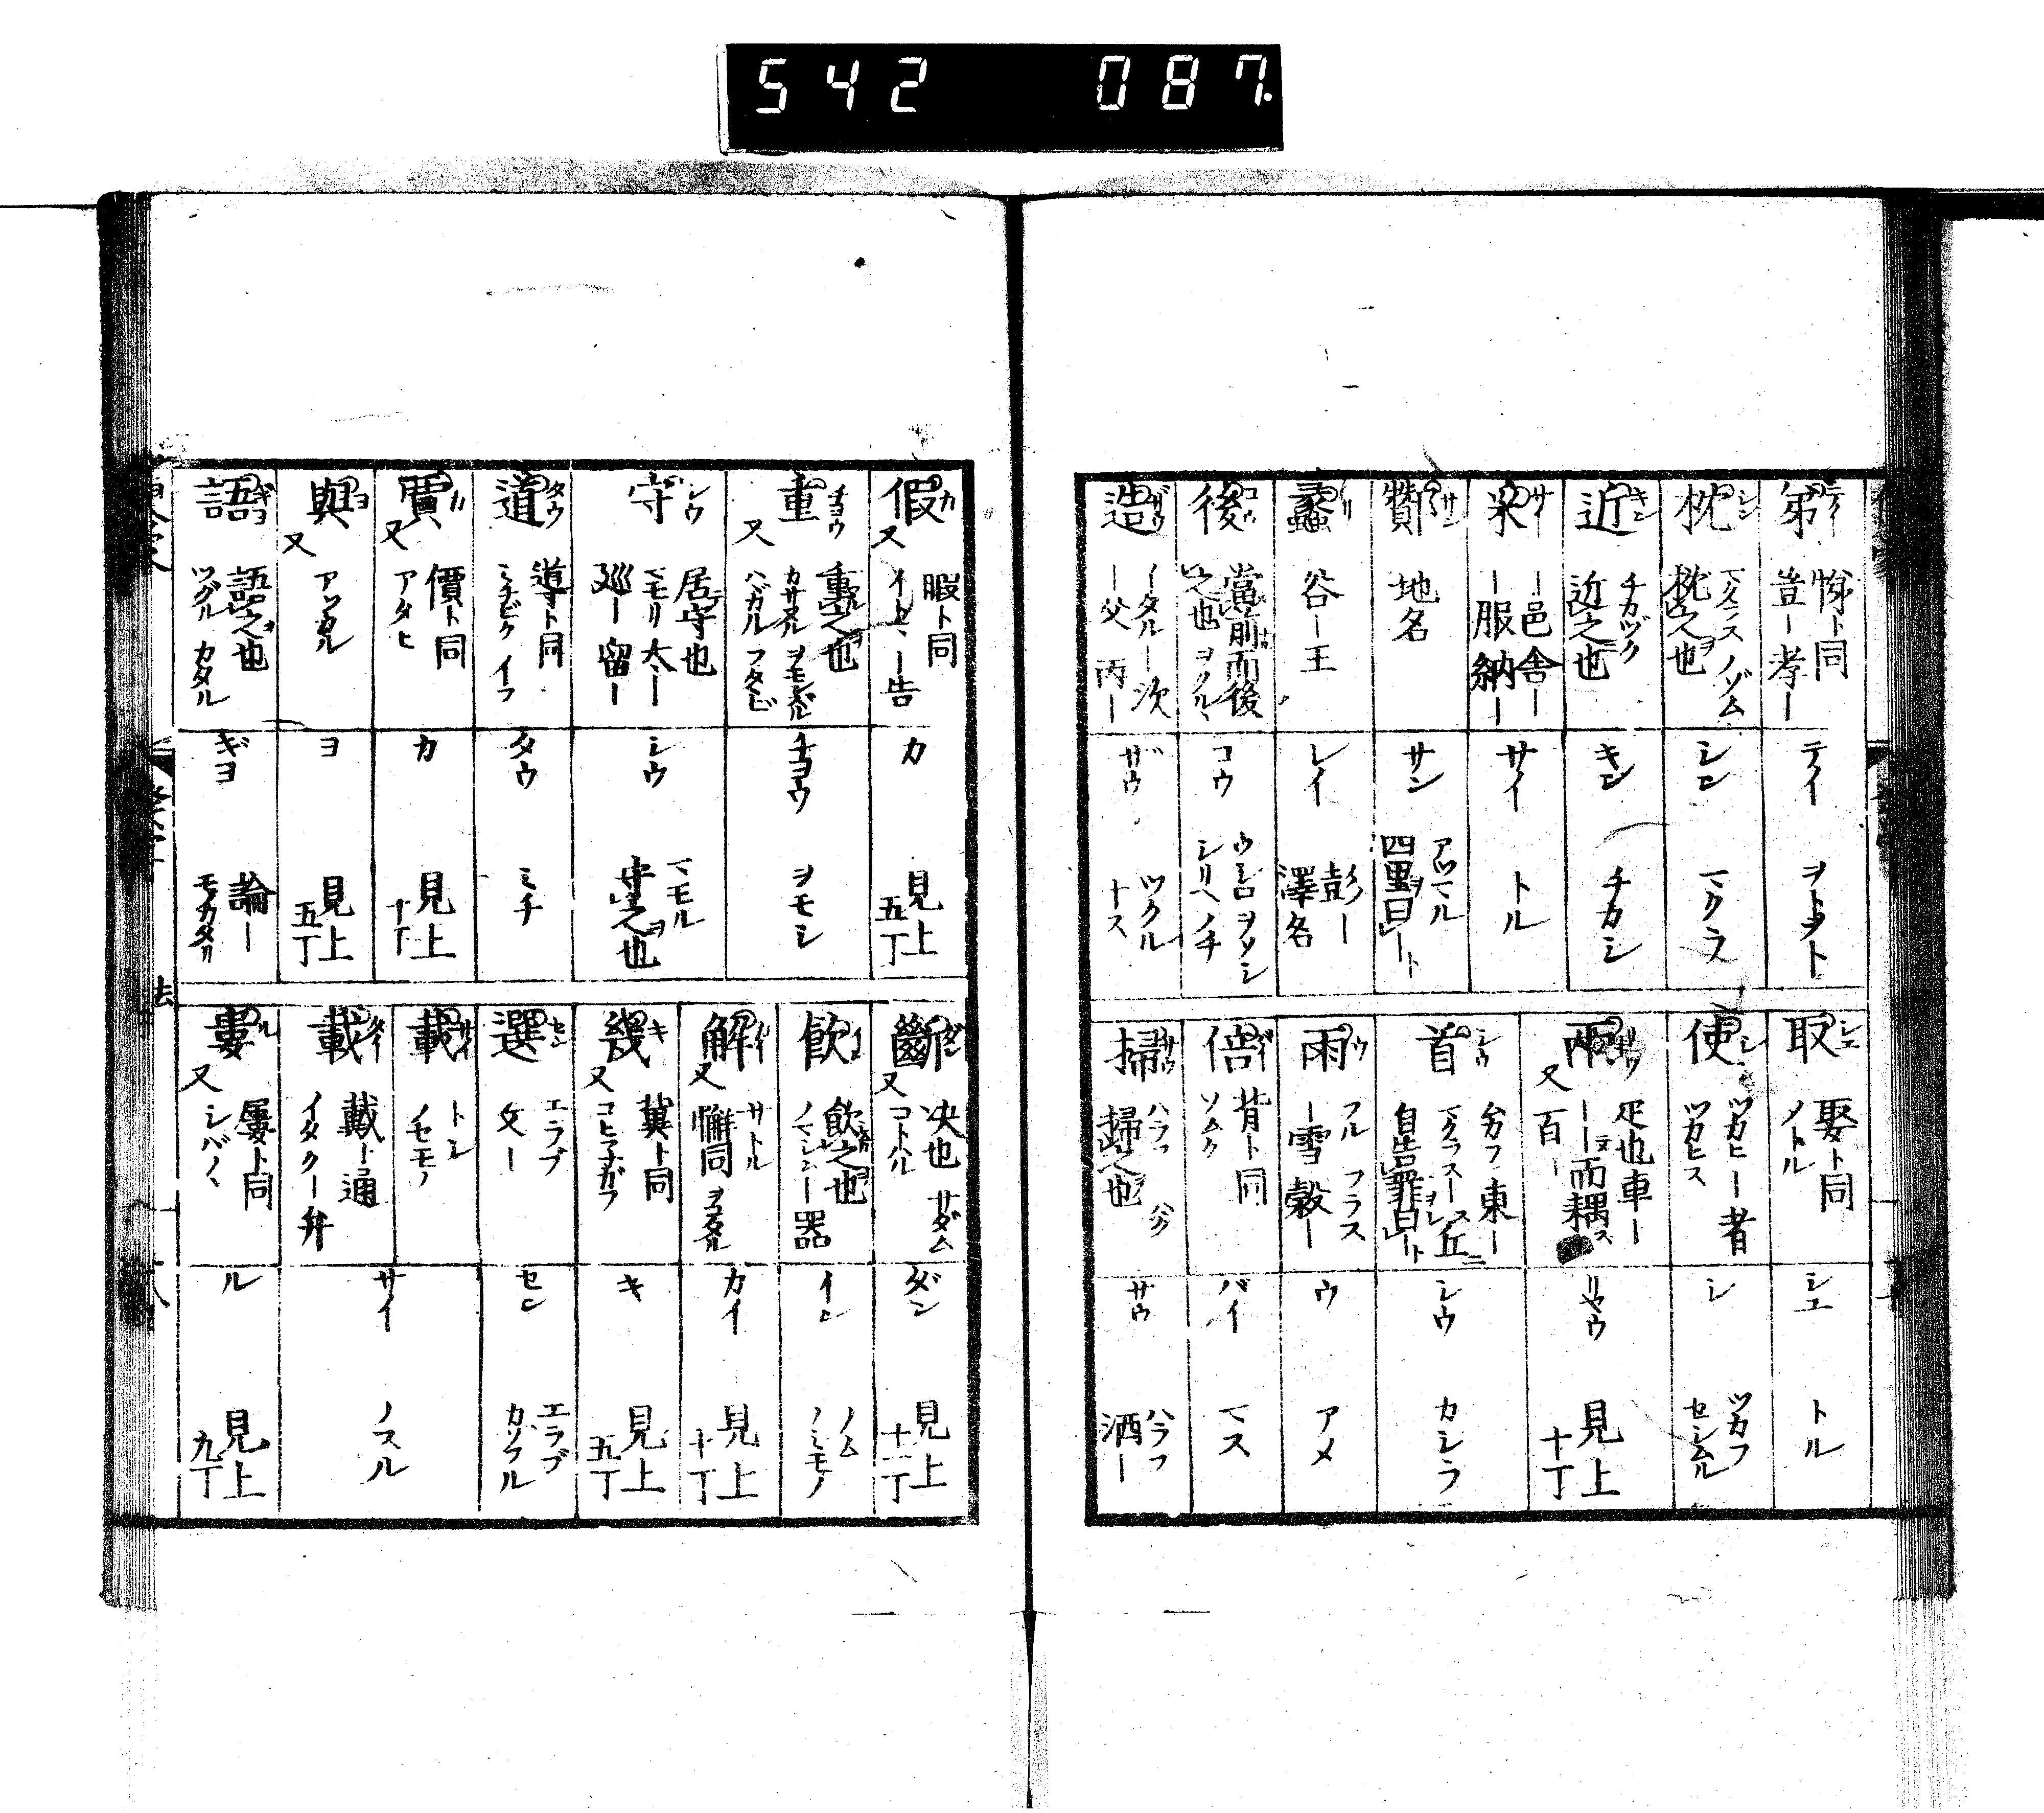 542 087.
弟 テイ 悌ト同
豈ー孝ー
テイ ヲトヲト
枕 シン マクラス ノゾム
枕之也
シン マクラ
近 キン チカヅク
近之也
キン チカシ
采 サイ ー邑舎ー
ー服納ー
サイ トル
賛 サン 地名
サン アツマル
四里ヲ曰ート
蠡 リ 谷ー王
レイ 彭ー
澤名
後 コウ 當前而後
之也 ヲクルヽ
コウ ウシロ ヲソシ
シリヘ ノチ
造 ザウ イタルー次
ー父 丙ー
ザウ ツクル
ナス
取 シユ 娶ト同
メトル
シユ トル
使 シ ツカヒー者
ツカヒス
シ ツカフ
セシムル
兩 リヤウ 又 疋也車ー
ーー而耦ス
百ー
リヤウ 見上
十丁
首 シウ ムカフ東ー
マクラスー丘ニ
自告罪曰ート
シウ カシラ
雨 ウ フル フラス
ー雪穀ー
ウ アメ
倍 バイ 背ト同
ソムク
バイ マス
掃 サウ ハラフ
掃之也
サウ ハラフ
洒ー
假 カ 又 暇ト同
イトマ ー告
カ 見上
五丁
重 チヨウ 又 重之也
カサヌル ヲモンズル
ハバカル フタタビ
チヨウ ヲモシ
守 シウ 居守也
マモリ 太ー
巡ー 留ー
シウ マモル
守之也
道 タウ 導ト同
ミチビク イフ
タウ ミチ
賈 カ 又 價ト同
アタヒ
カ 見上
十丁
與 ヨ 又 アツカル
ヨ 見上
五丁
語 ギヨ 語之也
ツグル カタル
ギヨ 論ー
モノカタリ
斷 ダン 又 决也 サダム
コトハル
ダン 見上
十一丁
飲 イン 飲之也
ノマシムー器
イン ノム
ノミモノ
解 カイ 又 サトル
懈同 ヲコタル
カイ 見上
十丁
幾 キ 又 冀ト同
コヒネガフ
キ 見上
五丁
選 セン エラブ
文ー
セン エラブ
カゾフル
載 サイ トシ
ノセモノ
載 タイ 戴ト通
イタヽクー弁
サイ ノスル
婁 ル 又 屢ト同
シバ〱
ル 見上
九丁